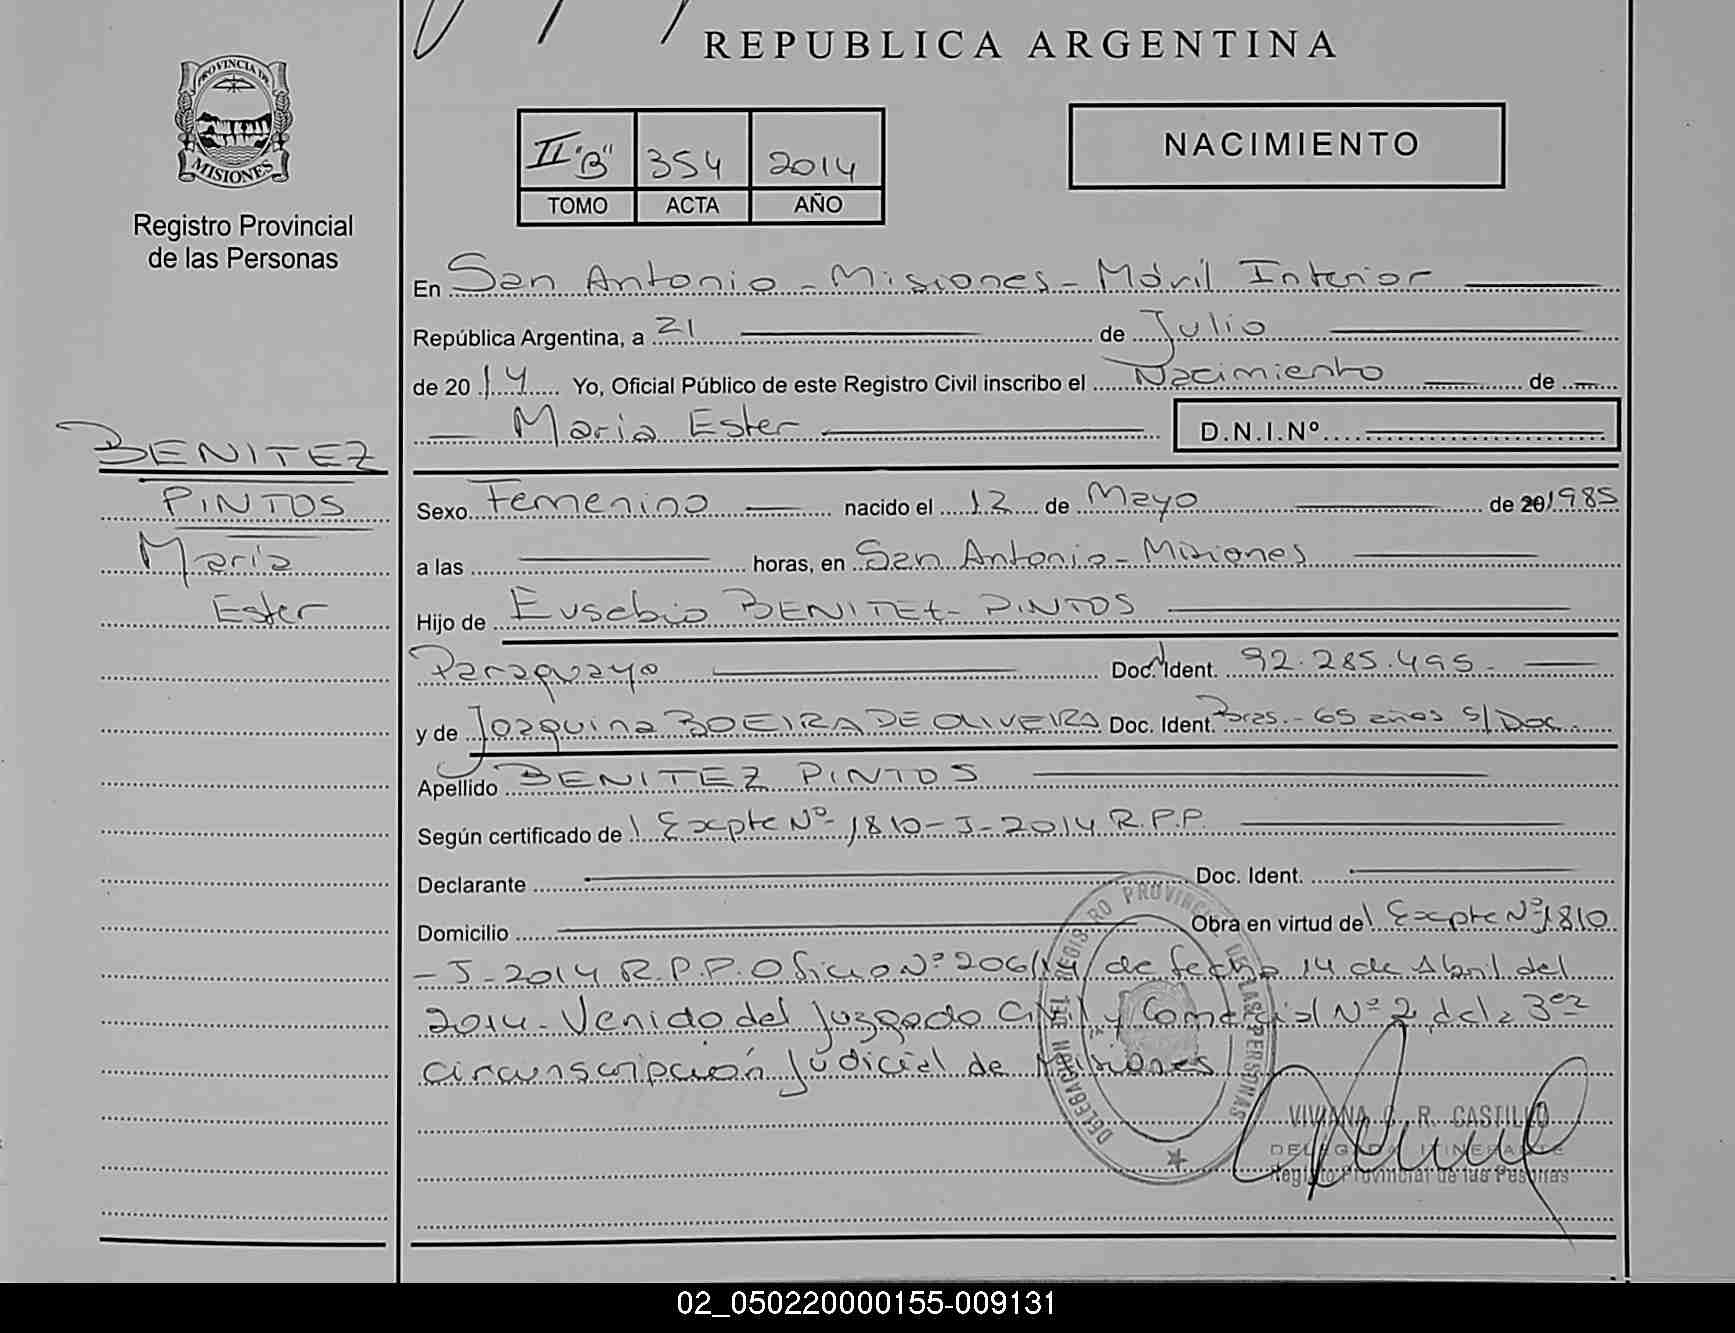 REPUBLICA ARGENTINA
PROVINCIA DE
MISIONES
Registro Provincial
de las Personas
II "B" 354 2014
TOMO ACTA AÑO
NACIMIENTO
En San Antonio - Misiones - Móvil Interior
República Argentina, a 21 de Julio
de 2014 Yo, Oficial Público de este Registro Civil inscribo el Nacimiento de
María Ester D.N.I.Nº
BENITEZ
PINTOS
María
Ester
Sexo Femenino nacido el 12 de Mayo de 20 1985
a las horas, en San Antonio - Misiones
Hijo de Eusebio BENITEZ - PINTOS
Paraguayo Doc. Ident. 92.285.495-
y de Joaquina BOEIRA DE OLIVEIRA Doc. Ident. Bras. - 65 años s/Doc.
Apellido BENITEZ PINTOS
Según certificado de l Expte Nº 1810-J-2014 R.P.P.
Declarante Doc. Ident.
Domicilio Obra en virtud del Expte Nº 1810
-J-2014 R.P.P. Oficio Nº 206/14 de fecha 14 de Abril del
2014 - Venido del Juzgado Civil y Comercial Nº 2 de la 3era
circunscripción Judicial de Misiones
REGISTRO PROVINCIAL DE LAS PERSONAS
DELEGACION
VIVIANA C. R. CASTILLO
DELEGADA ITINERANTE
Registro Provincial de las Pesonas
02_050220000155-009131